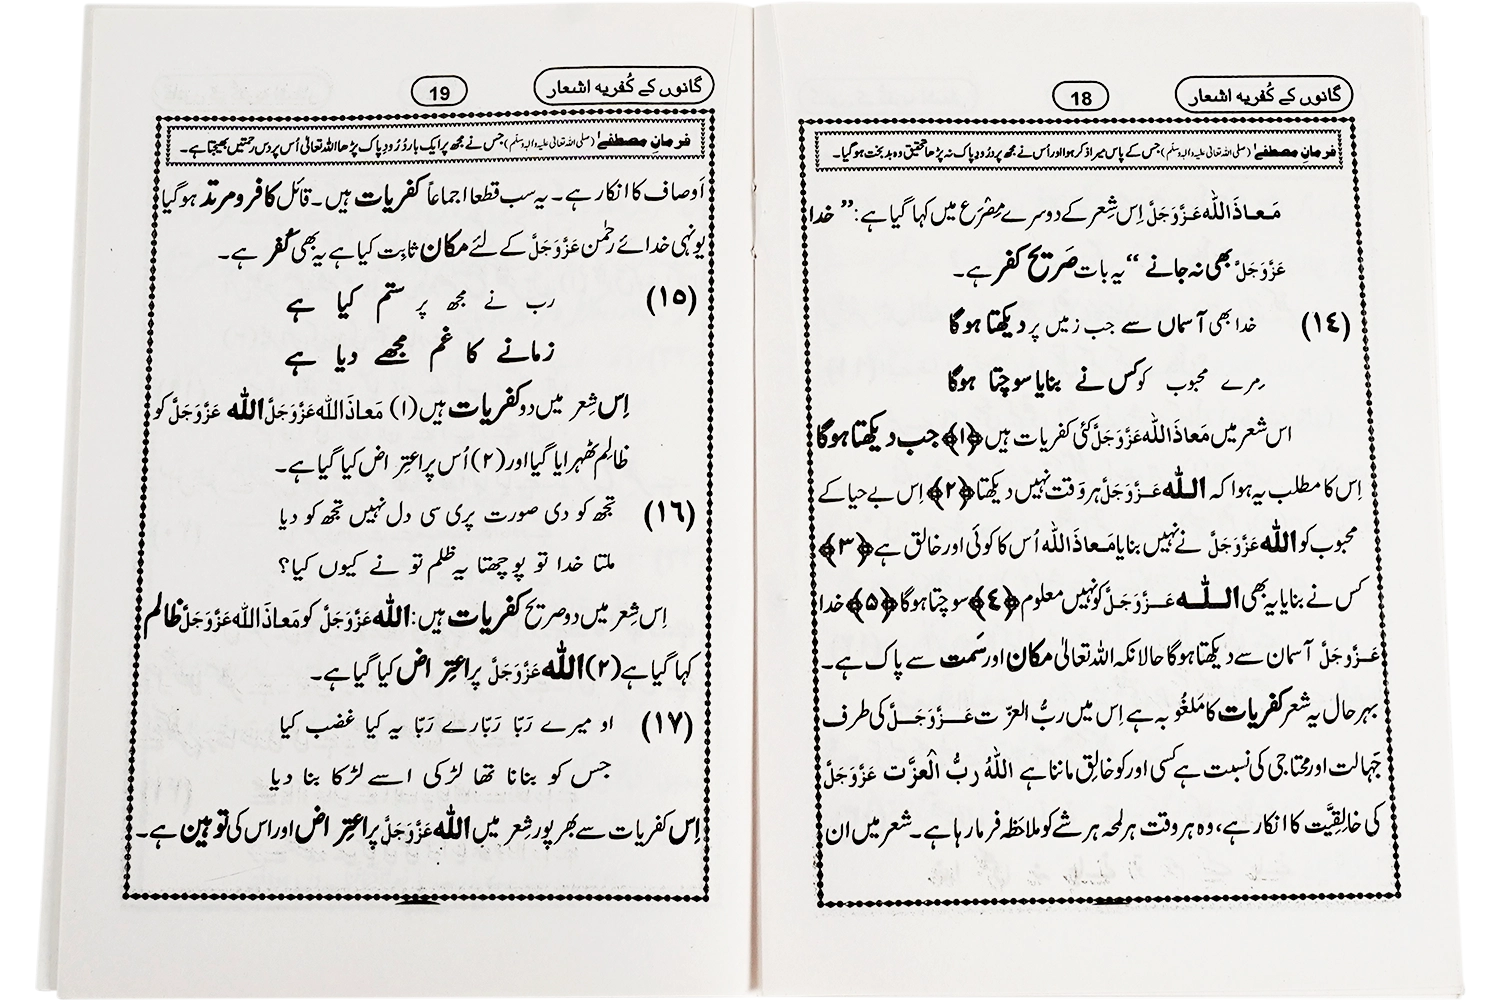 گانوں کے کُفریہ اشعار
18
فرمانِ مصطفےٰ (صلی اللہ تعالیٰ علیہ والہ وسلّم) جس کے پاس میرا ذکر ہوا اور اُس نے مجھ پر درُودِ پاک نہ پڑھا تحقیق وہ بد بخت ہو گیا۔
مَعاذَاللّٰہ عَزَّوَجَلَّ اِس شِعر کے دوسرے مِصْرَع میں کہا گیا ہے: ” خدا
عَزَّوَجَلَّ بھی نہ جانے “ یہ بات صَریح کفر ہے۔
(١٤) خدا بھی آسماں سے جب زمیں پر دیکھتا ہوگا
مرے محبوب کو کس نے بنایا سوچتا ہوگا
اس شعر میں مَعاذَاللّٰہ عَزَّوَجَلَّ کئی کفریات ہیں ﴿۱﴾ جب دیکھتا ہوگا
اِس کا مطلب یہ ہوا کہ اللّٰہ عَزَّوَجَلَّ ہر وَقت نہیں دیکھتا ﴿۲﴾ اِس بے حیا کے
محبوب کو اللّٰہ عَزَّوَجَلَّ نے نہیں بنایا مَعاذَاللّٰہ اُس کا کوئی اور خالق ہے ﴿۳﴾
کس نے بنایا یہ بھی اللّٰہ عَزَّوَجَلَّ کو نہیں معلوم ﴿٤﴾ سوچتا ہوگا ﴿۵﴾ خدا
عَزَّوَجَلَّ آسمان سے دیکھتا ہوگا حالانکہ اللہ تعالیٰ مکان اور سَمت سے پاک ہے۔
بہر حال یہ شعر کفریات کا مَلغُوبہ ہے اِس میں ربُّ العزّت عَزَّوَجَلَّ کی طرف
جَہالت اور محتاجی کی نسبت ہے کسی اور کو خالِق ماننا ہے اللّٰہُ ربُّ الْعزَّت عَزَّوَجَلَّ
کی خالِقِیَّت کا انکار ہے، وہ ہر وقت ہر لمحہ ہر شے کو ملاحَظہ فرما رہا ہے۔ شعر میں ان
گانوں کے کُفریہ اشعار
19
فرمانِ مصطفےٰ (صلی اللہ تعالیٰ علیہ والہ وسلّم) جس نے مجھ پر ایک بار دُرُودِ پاک پڑھا اللہ تعالیٰ اُس پر دس رحمتیں بھیجتا ہے۔
اَوصاف کا انکار ہے۔ یہ سب قطعاً اجماعاً کفریات ہیں۔ قائل کافر و مرتد ہو گیا
یونہی خدائے رحمٰن عَزَّوَجَلَّ کے لئے مکان ثابِت کیا ہے یہ بھی کُفر ہے۔
(١٥) رب نے مجھ پر ستم کیا ہے
زمانے کا غم مجھے دیا ہے
اِس شِعر میں دو کفریات ہیں (۱) مَعاذَاللّٰہ عَزَّوَجَلَّ اللّٰہ عَزَّوَجَلَّ کو
ظالم ٹھہرایا گیا اور (۲) اُس پر اعتِراض کیا گیا ہے۔
(١٦) تجھ کو دی صورت پری سی دل نہیں تجھ کو دیا
ملتا خدا تو پوچھتا یہ ظلم تو نے کیوں کیا؟
اِس شِعر میں دو صریح کفریات ہیں: اللّٰہ عَزَّوَجَلَّ کو مَعاذَاللّٰہ عَزَّوَجَلَّ ظالم
کہا گیا ہے (۲) اللّٰہ عَزَّوَجَلَّ پر اعتِراض کیا گیا ہے۔
(١٧) او میرے رَبّا رَبّارے رَبّا یہ کیا غضب کیا
جس کو بنانا تھا لڑکی اسے لڑکا بنا دیا
اِس کفریات سے بھرپور شِعر میں اللّٰہ عَزَّوَجَلَّ پر اعتِراض اور اس کی توہین ہے۔